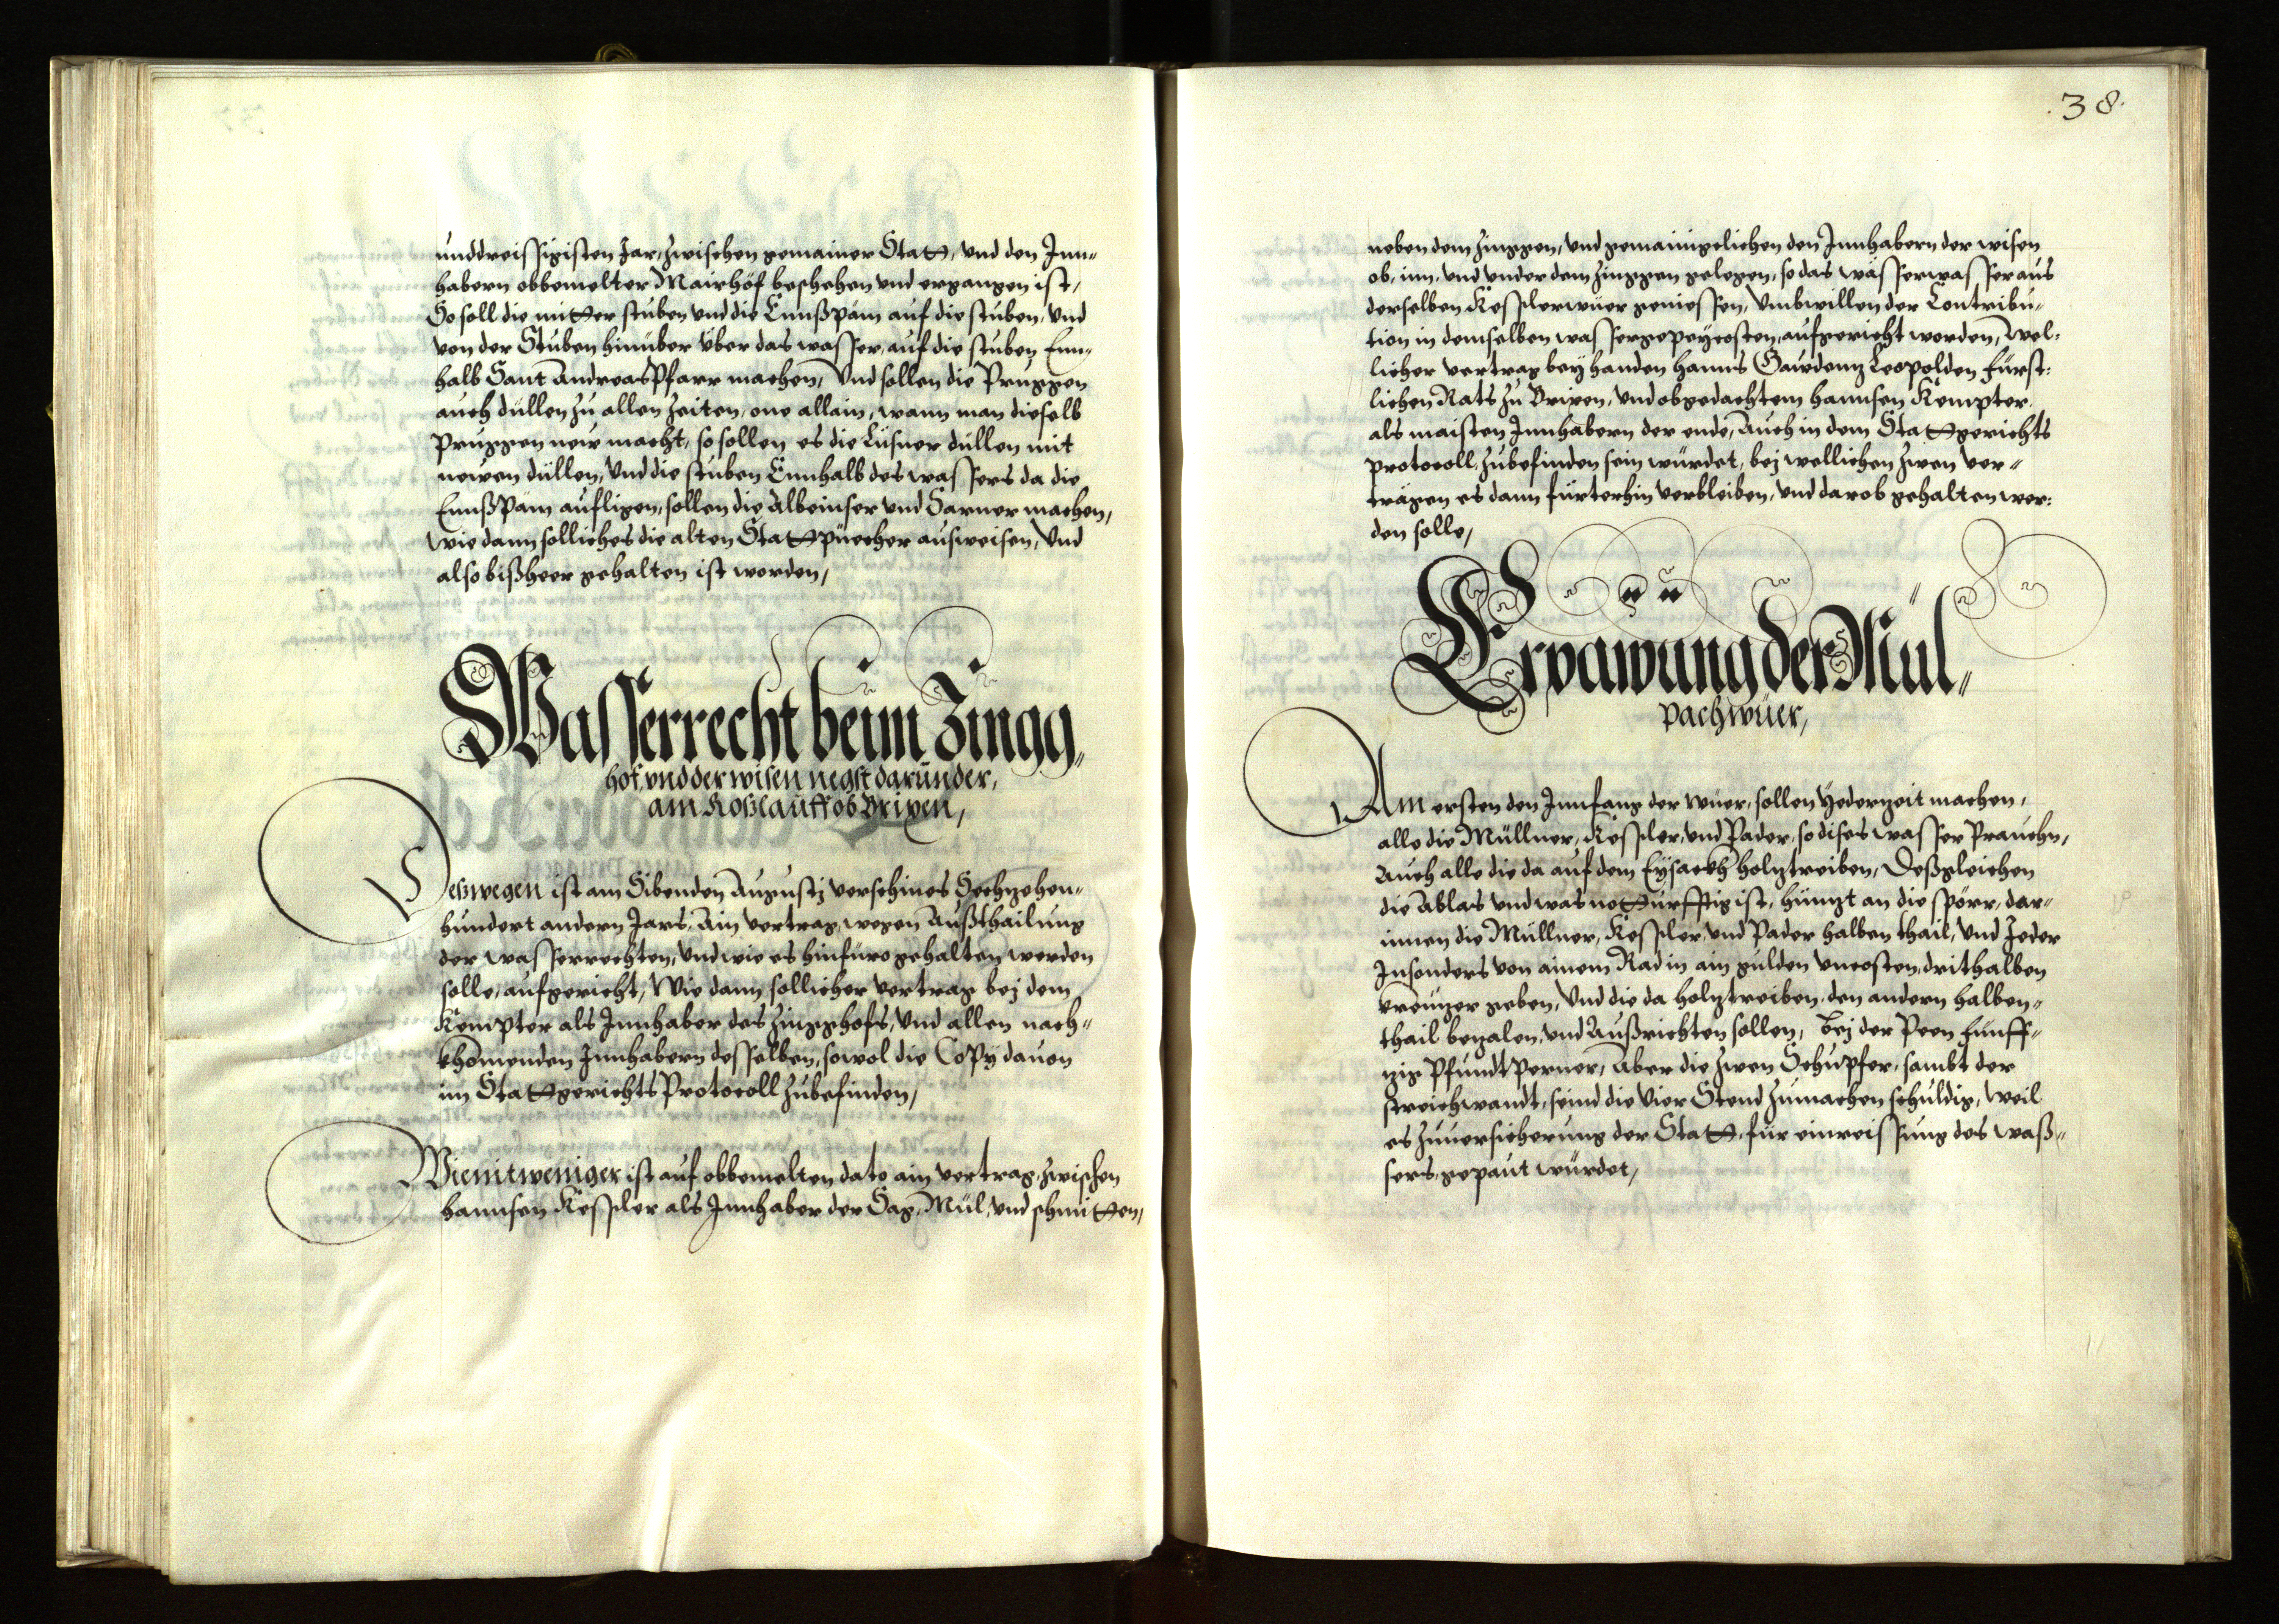 unddreissigisten Jar, zwischen gemainer Statt, und den Inn-
habern obbemelter Mairhöf beschehen und ergangen ist,
So soll die mitter stuben und die Ennßpäm auf die stuben, und
von der Stuben hinüber über das wasser, auf die stuben Enn-
halb Sant Andreas Pfarr machen, Und sollen die Pruggen
auch düllen zu allen Zeiten, one allain, wann man dieselb
Pruggen new macht, so sollen es die Lüsner düllen mit
newen düllen, Und die stuben Ennhalb des wassers da die
Ennßpäm aufligen, sollen die Albeinser und Sarner machen,
Wie dann solliches die alten Stattpüecher ausweisen, Und
also bißheer gehalten ist worden,
Wasserrecht beim Zingg-
hof, und der wisen negst darunder,
am Roßlauff ob Brixen,
Deßwegen ist am Sibenden Augustj verschines Sechzehen-
hundert andern Jars, Ain vertrag, wegen Außthailung
der Wasserrechten, Und wie es hinfüro gehalten werden
solle, aufgericht, Wie dann sollicher vertrag bej dem
Kempter als Innhaber des Zingghofs, Und allen nach-
khomenden Innhabern desselben, sowol die Copÿ dauon
im Stattgerichts Protocoll zubefinden,
Wie nit weniger ist auf obbemelten dato ain vertrag, zwischen
hannsen Kessler als Innhaber der Sag, Mül, und schmitten,
.38.
neben dem Zinggen, und gemainigelichen den Innhabern der wisen
ob, inn, und under dem Zinggen gelegen, so das wässerwasser aus
derselben Kesslerwüer geniessen, Umbwillen der Contribu-
tion in demselben wassergepeycosten, aufgericht worden, Wel-
licher vertrag bey handen hanns Gaudenz Leopolden Fürst-
lichen Rats zu Brixen, und obgedachtem hannsen Kempter,
als maisten Innhabern der ende, Auch in dem Stattgerichts
protocoll, zubefinden sein würdet, bej wellichen zwen ver-
trägen es dann fürterhin verbleiben, und darob gehalten wer-
den solle,
Erpawung der Mül-
pachwüer,
Am ersten den Innfang der wüer, sollen Yederzeit machen,
alle die Müllner, Kessler, und Pader, so dises wasser Prauchn,
Auch alle die da auf dem Eysackh holz treiben, Deßgleichen
die Ablas und was notturfftig ist, hünzt an die spörr, dar-
innen die Müllner, Kessler, und Pader halben thail, Und Jeder
Insonders von ainem Rad in ain gulden uncosten, drithalben
kreuzer geben, Und die da holz treiben, den andern halben-
thail bezalen, und Außrichten sollen, Bej der Peen Fünff-
zig Pfundt Perner, Aber die zwen Schupfer, sambt der
streichwandt, seind die Vier Stend zumachen schuldig, Weil
es zuuersicherung der Statt, für einreissung des waß-
sers, gepaut würdet,